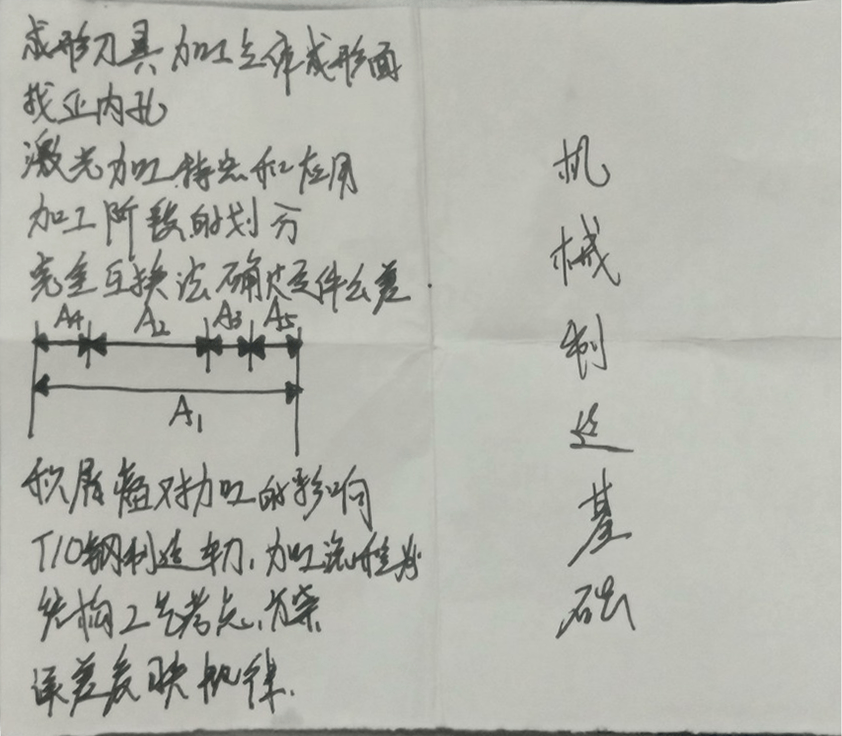 成形刀具加工立体成形面
找正内孔
激光加工特点和应用
加工阶段的划分
完全互换法确定零件公差.
A4 A2 A3 A5
A1
积屑瘤对加工的影响
T10钢制造车刀,加工
结构工艺考点、方案
误差复映规律.
机
械
制
造
基
础